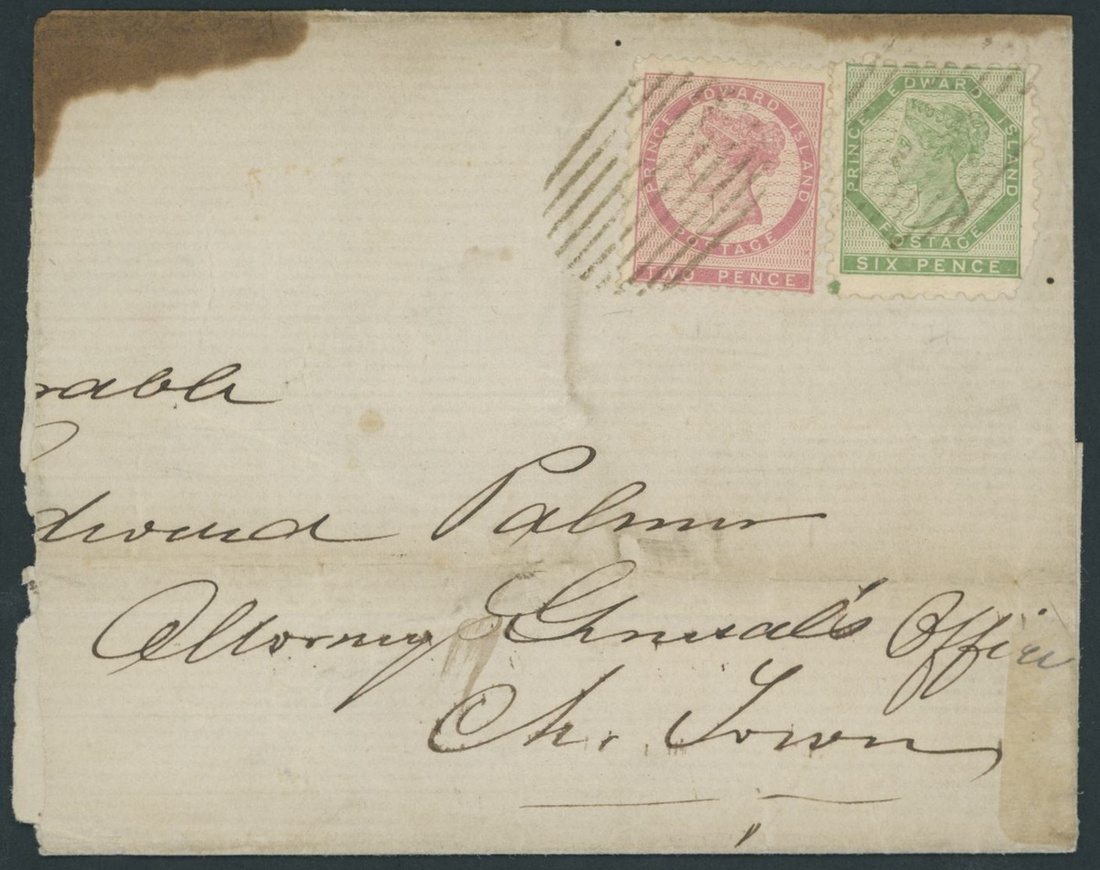 PRINCE EDWARD ISLAND
POSTAGE
TWO PENCE
PRINCE EDWARD ISLAND
POSTAGE
SIX PENCE
rable
dward Palmer
Attorney Generals Office
Ch. Town